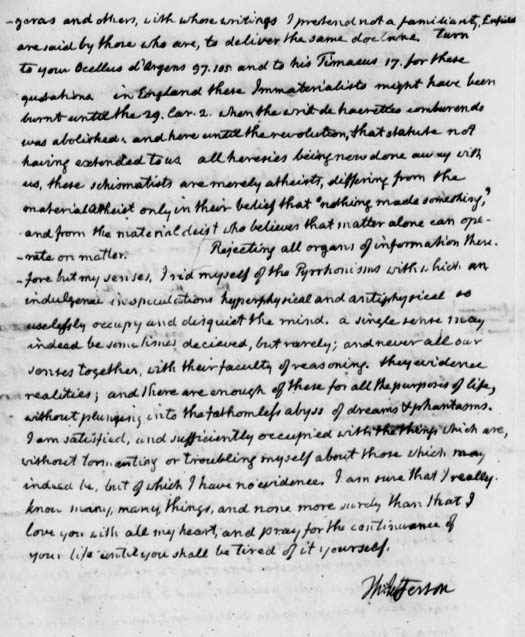 -goras and others, with whose writings I pretend not a familiarity, Enfield
are said by those who are, to deliver the same doctrine. turn
to your Ocellus d'Argens 97. 105. and to his Timaeus 17. for these
quotations. in England these Immaterialists might have been
burnt until the 29. Car. 2. when the writ de haeretico comburendo
was abolished: and here until the revolution, that statute not
having extended to us. all heresies being now done away with
us, these schismatists are merely atheists, differing from the
material Atheist only in their belief that "nothing made something,"
and from the material deist who believes that matter alone can ope-
-rate on matter.
Rejecting all organs of information there-
fore but my senses, I rid myself of the Pyrrhonisms with which an
indulgence in speculations hyperphysical and antiphysical so
uselessly occupy and disquiet the mind. a single sense may
indeed be sometimes decieved, but rarely; and never all our
senses together, with their faculty of reasoning. they evidence
realities; and there are enough of these for all the purposes of life,
without plunging into the fathomless abyss of dreams & phantasms.
I am satisfied, and sufficiently occupied with the things which are,
without tormenting or troubling myself about those which may
indeed be, but of which I have no evidence. I am sure that I really
know many, many, things, and none more surely than that I
love you with all my heart, and pray for the continuance of
your life until you shall be tired of it yourself.
Th: Jefferson